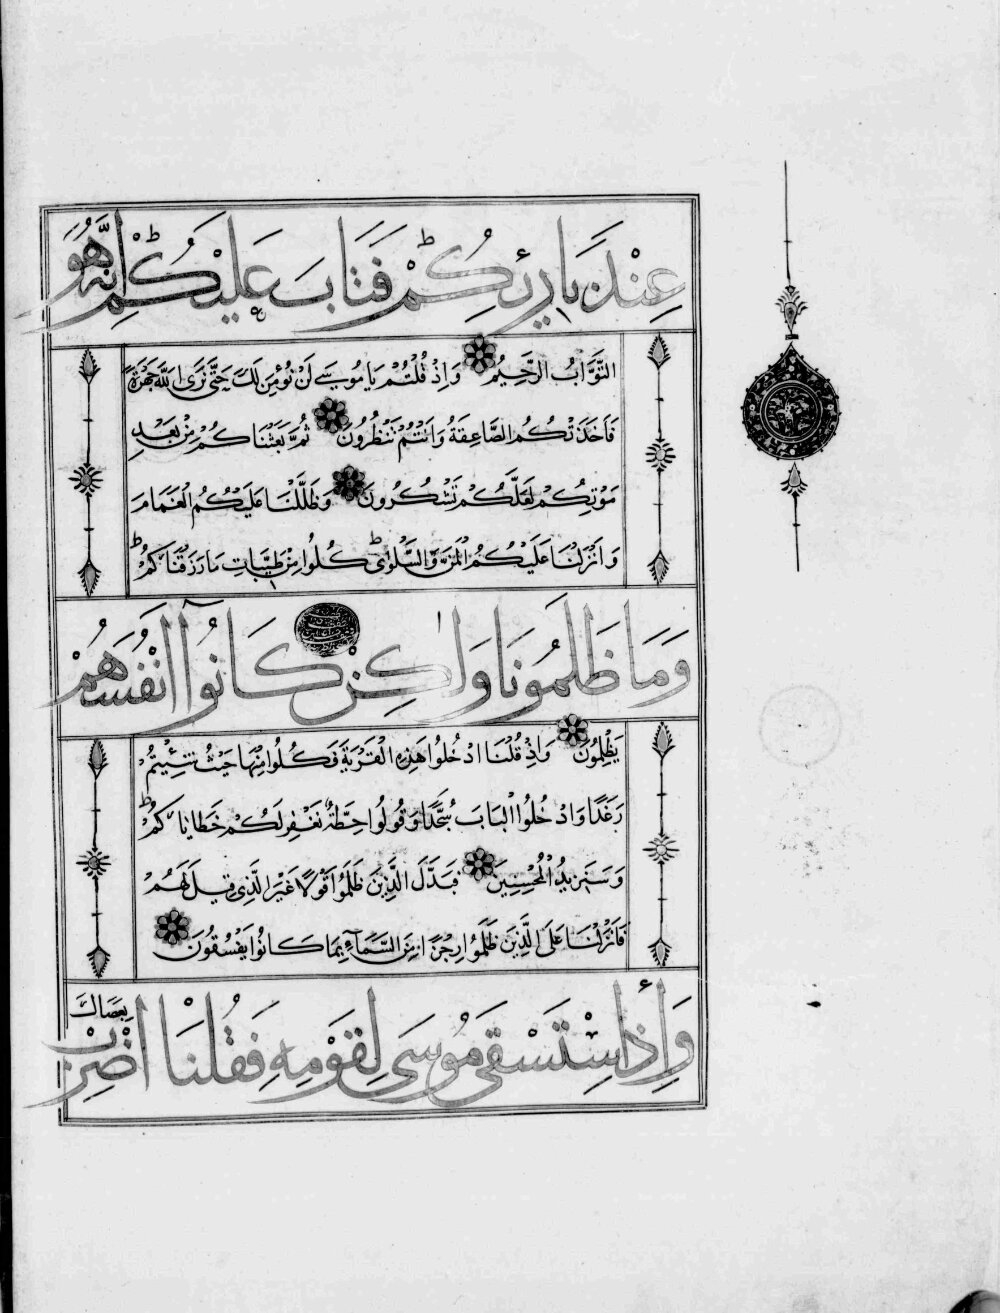 عِنْدَ بَارِئِكُمْ فَتَابَ عَلَيْكُمْ اِنَّهُ هُوَ
التَّوَّابُ الرَّحِيمُ وَاِذْ قُلْتُمْ يَا مُوسٰى لَنْ نُؤْمِنَ لَكَ حَتّٰى نَرَى اللّٰهَ جَهْرَةً
فَاَخَذَتْكُمُ الصَّاعِقَةُ وَاَنْتُمْ تَنْظُرُونَ ثُمَّ بَعَثْنَاكُمْ مِنْ بَعْدِ
مَوْتِكُمْ لَعَلَّكُمْ تَشْكُرُونَ وَظَلَّلْنَا عَلَيْكُمُ الْغَمَامَ
وَاَنْزَلْنَا عَلَيْكُمُ الْمَنَّ وَالسَّلْوٰى كُلُوا مِنْ طَيِّبَاتِ مَا رَزَقْنَاكُمْ
وَمَا ظَلَمُونَا وَلٰكِنْ كَانُوا اَنْفُسَهُمْ
يَظْلِمُونَ وَاِذْ قُلْنَا ادْخُلُوا هٰذِهِ الْقَرْيَةَ فَكُلُوا مِنْهَا حَيْثُ شِئْتُمْ
رَغَدًا وَادْخُلُوا الْبَابَ سُجَّدًا وَقُولُوا حِطَّةٌ نَغْفِرْ لَكُمْ خَطَايَاكُمْ
وَسَنَزِيدُ الْمُحْسِنِينَ فَبَدَّلَ الَّذِينَ ظَلَمُوا قَوْلًا غَيْرَ الَّذِي قِيلَ لَهُمْ
فَاَنْزَلْنَا عَلَى الَّذِينَ ظَلَمُوا رِجْزًا مِنَ السَّمَآءِ بِمَا كَانُوا يَفْسُقُونَ
وَاِذِ اسْتَسْقٰى مُوسٰى لِقَوْمِهِ فَقُلْنَا اضْرِبْ
بِعَصَاكَ